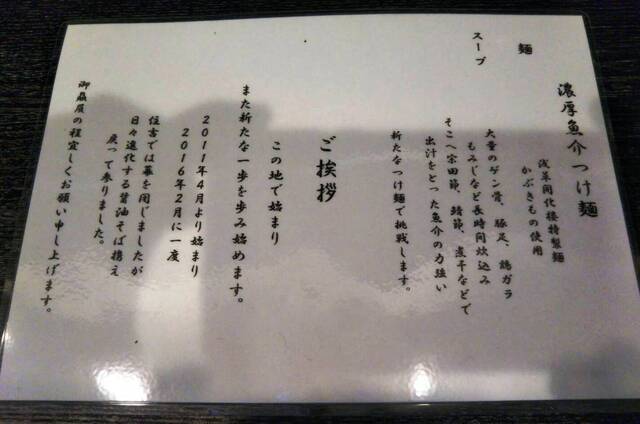 濃厚魚介つけ麺
麺
浅草開化楼特製麺
かぶきもの使用
スープ
大量のゲン骨、豚足、鶏ガラ
もみじなど長時間炊込み
そこへ宗田節、鯖節、煮干などで
出汁をとった魚介の力強い
新たなつけ麺で挑戦します。
ご挨拶
この地で始まり
また新たな一歩を歩み始めます。
2011年4月より始まり
2016年2月に一度
住吉では幕を閉じましたが
日々進化する醤油そば携え
戻って参りました。
御贔屓の程宜しくお願い申し上げます。